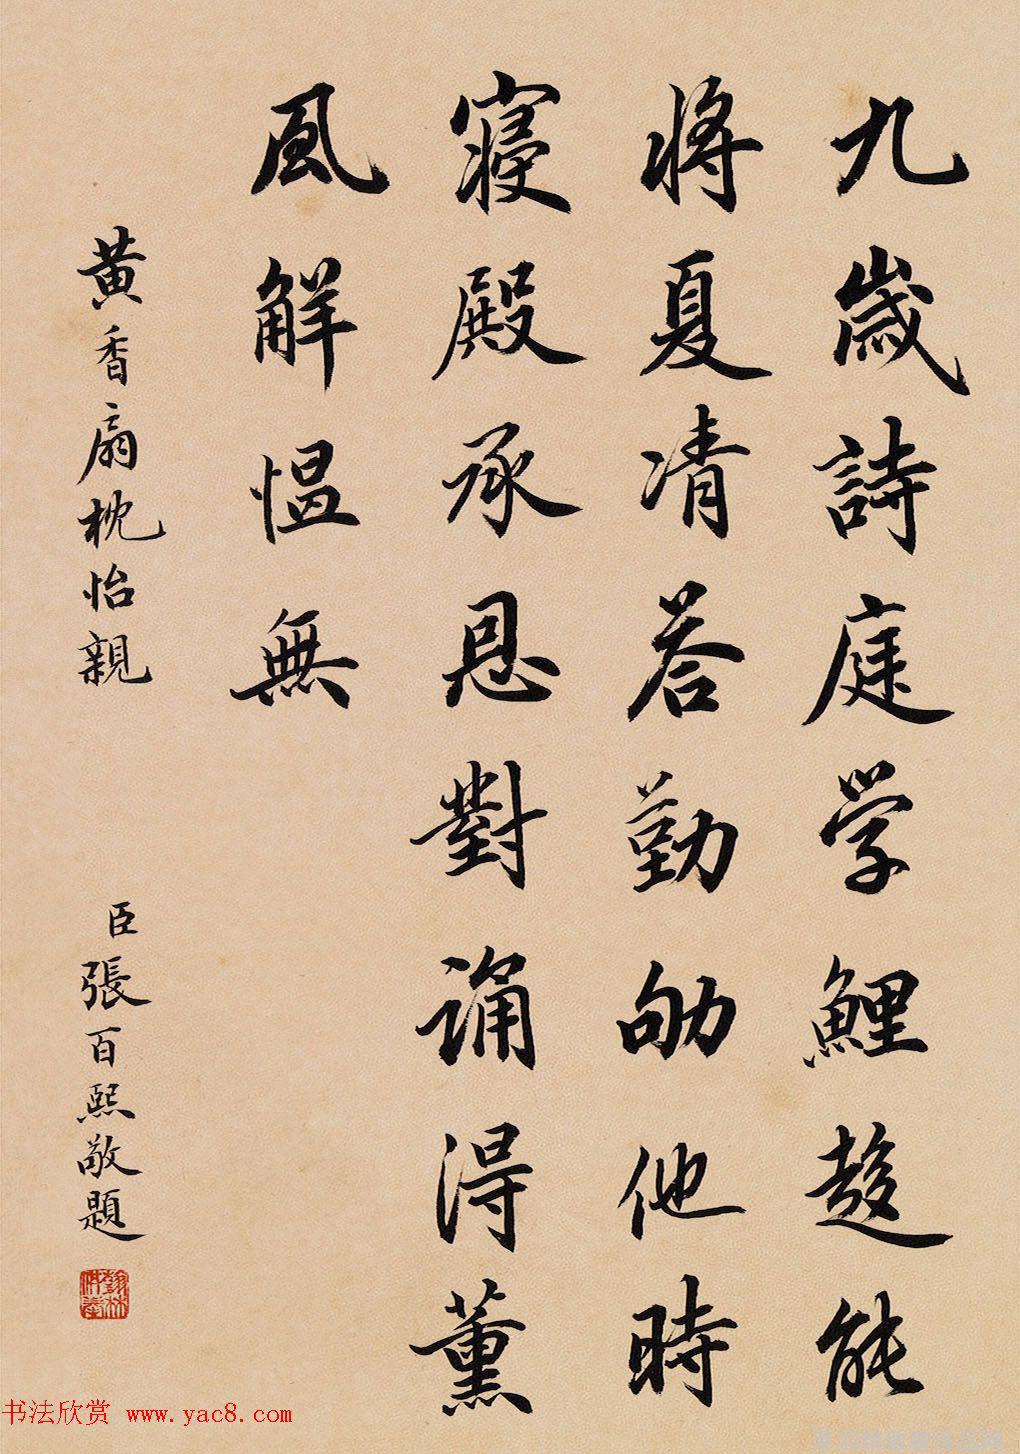 九歲詩庭学鯉趍能
將夏凊荅勤劬他時
寝殿承恩對誦得薰
風解愠無
黄香扇枕怡親
臣張百熙敬題
书法欣赏 www.yac8.com